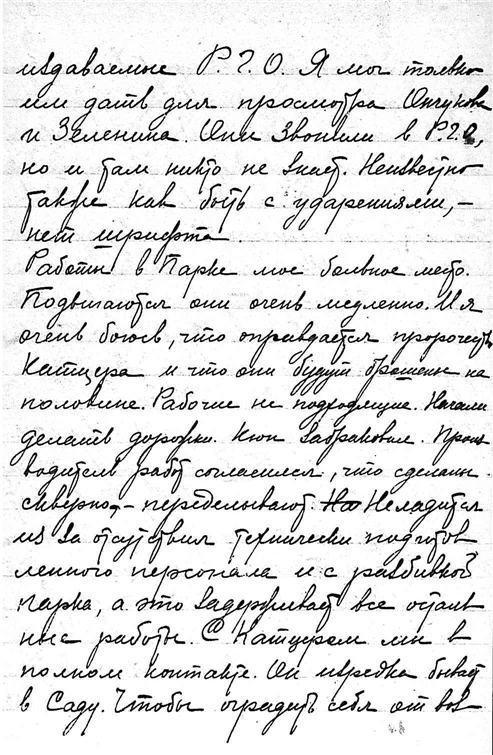 издаваемые Р.Г.О. Я мог только
им дать для просмотра Ончукова
и Зеленина. Они звонили в Р.Г.О,
но и там никто не знает. Неизвестно
также как быть с ударениями, –
нет шрифта.
Работы в Парке мое больное место.
Подвигаются они очень медленно. И я
очень боюсь, что оправдается пророчество
Катцера и что они будут брошены на
половине. Рабочие не подходящие. Начали
делать дорожки. Кюн забраковал. Произ
водитель работ согласился, что сделаны
скверно, – переделывают. На Неладится
из за отсутствия технически подготов
ленного персонала и с разбивкой
парка, а это задерживает все осталь
ные работы. С Катцером мы в
полном контакте. Он изредка бывает
в Саду. Чтобы оградить себя от воз